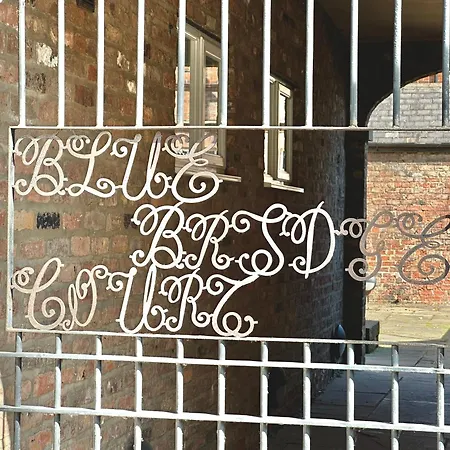 BLUE
BRIDGE
COURT